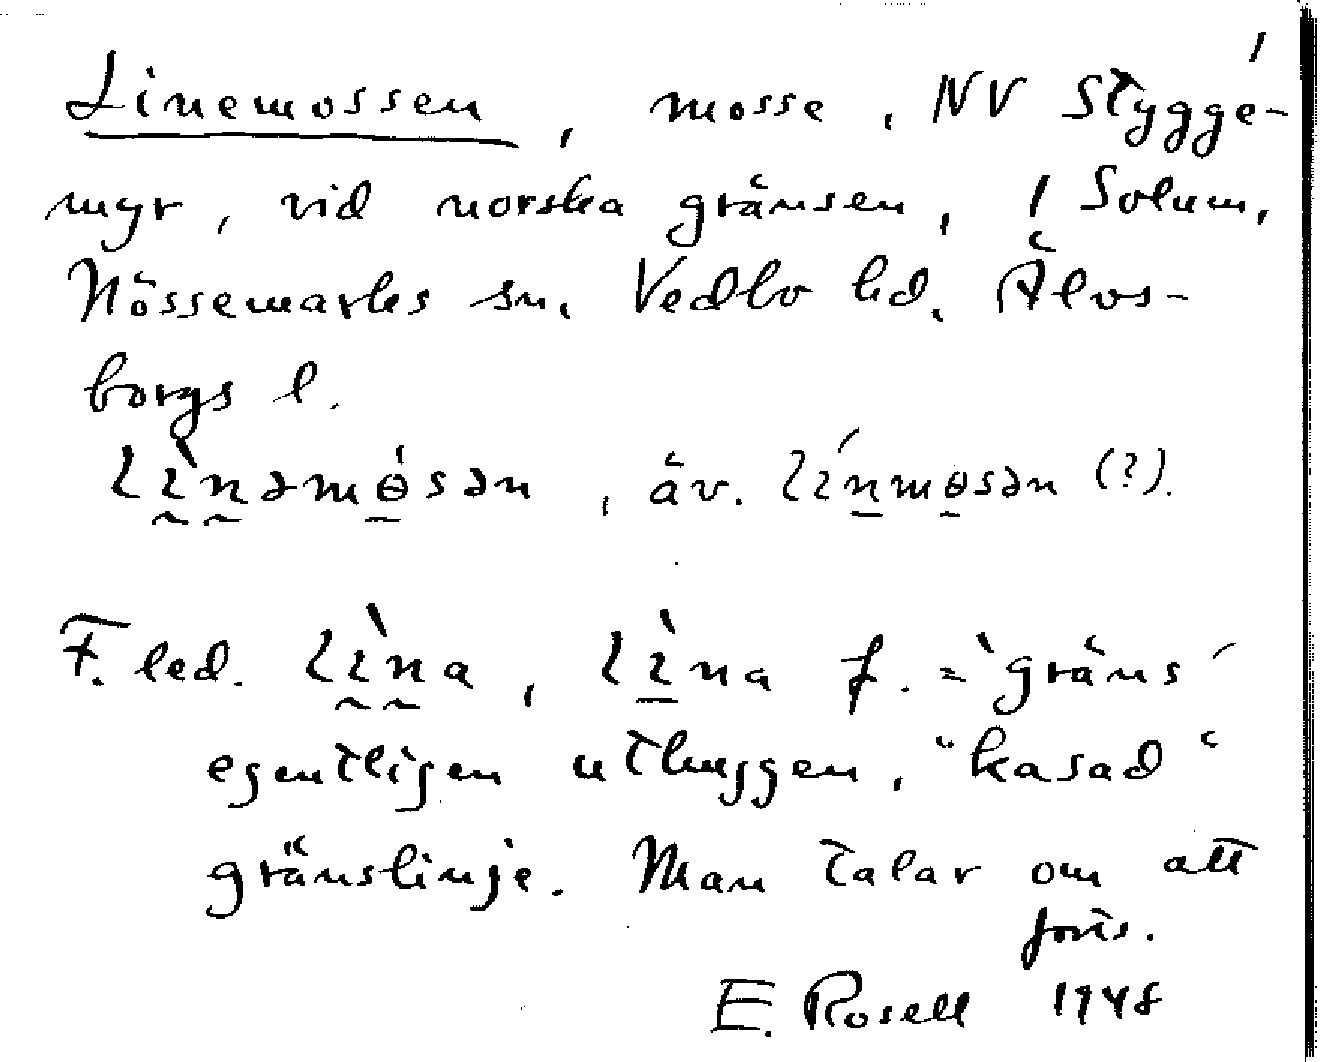 1
Linemossen, mosse, NV Stygge-
myr, vid norska gränsen, 1 Solum,
Nössemarks sn, Vedbo hd, Älvs-
borgs l.
lìnəmɵ́sən, äv. línmɵsən (?).
F. led. lìna, lìna f. = 'gräns'
egentligen uthuggen, "kasad"
gränslinje. Man talar om att
forts.
E. Rosell 1948